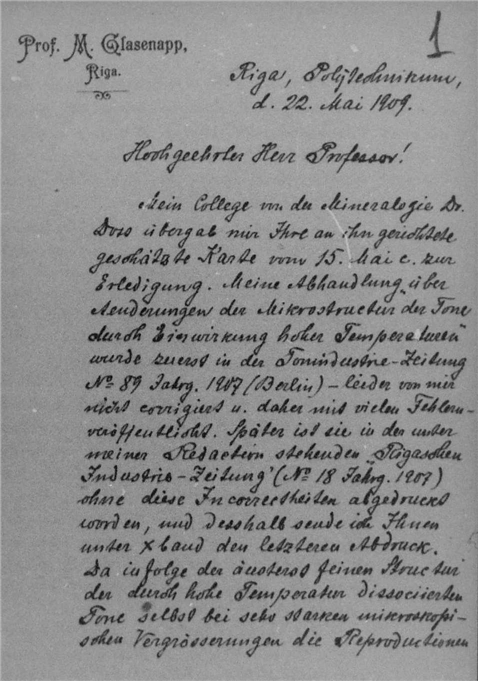 1
Prof. M. Glasenapp,
Riga.
Riga, Polytechnikum,
d. 22. Mai 1909.
Hochgeehrter Herr Professor!
Mein College von der Mineralogie Dr.
Doss übergab mir Ihre an ihn gerichtete
geschätzte Karte vom 15. Mai c. zur
Erledigung. Meine Abhandlung „über
Aenderungen der Mikrostructur der Tone
durch Einwirkung hoher Temperaturen"
wurde zuerst in der Tonindustrie-Zeitung
No 89 Jahrg. 1907 (Berlin) – leider von mir
nicht corrigiert u. daher mit vielen Fehlern –
veröffentlicht. Später ist sie in der unter
meiner Redaction stehenden „Rigaschen
Industrie-Zeitung" (No 18 Jahrg. 1907)
ohne diese Incorrectheiten abgedruckt
worden, und desshalb sende ich Ihnen
unter Xband den letzteren Abdruck.
Da infolge der äusserst feinen Structur
der durch hohe Temperatur dissociierten
Tone selbst bei sehr starken mikroskopi-
schen Vergrösserungen die Reproductionen